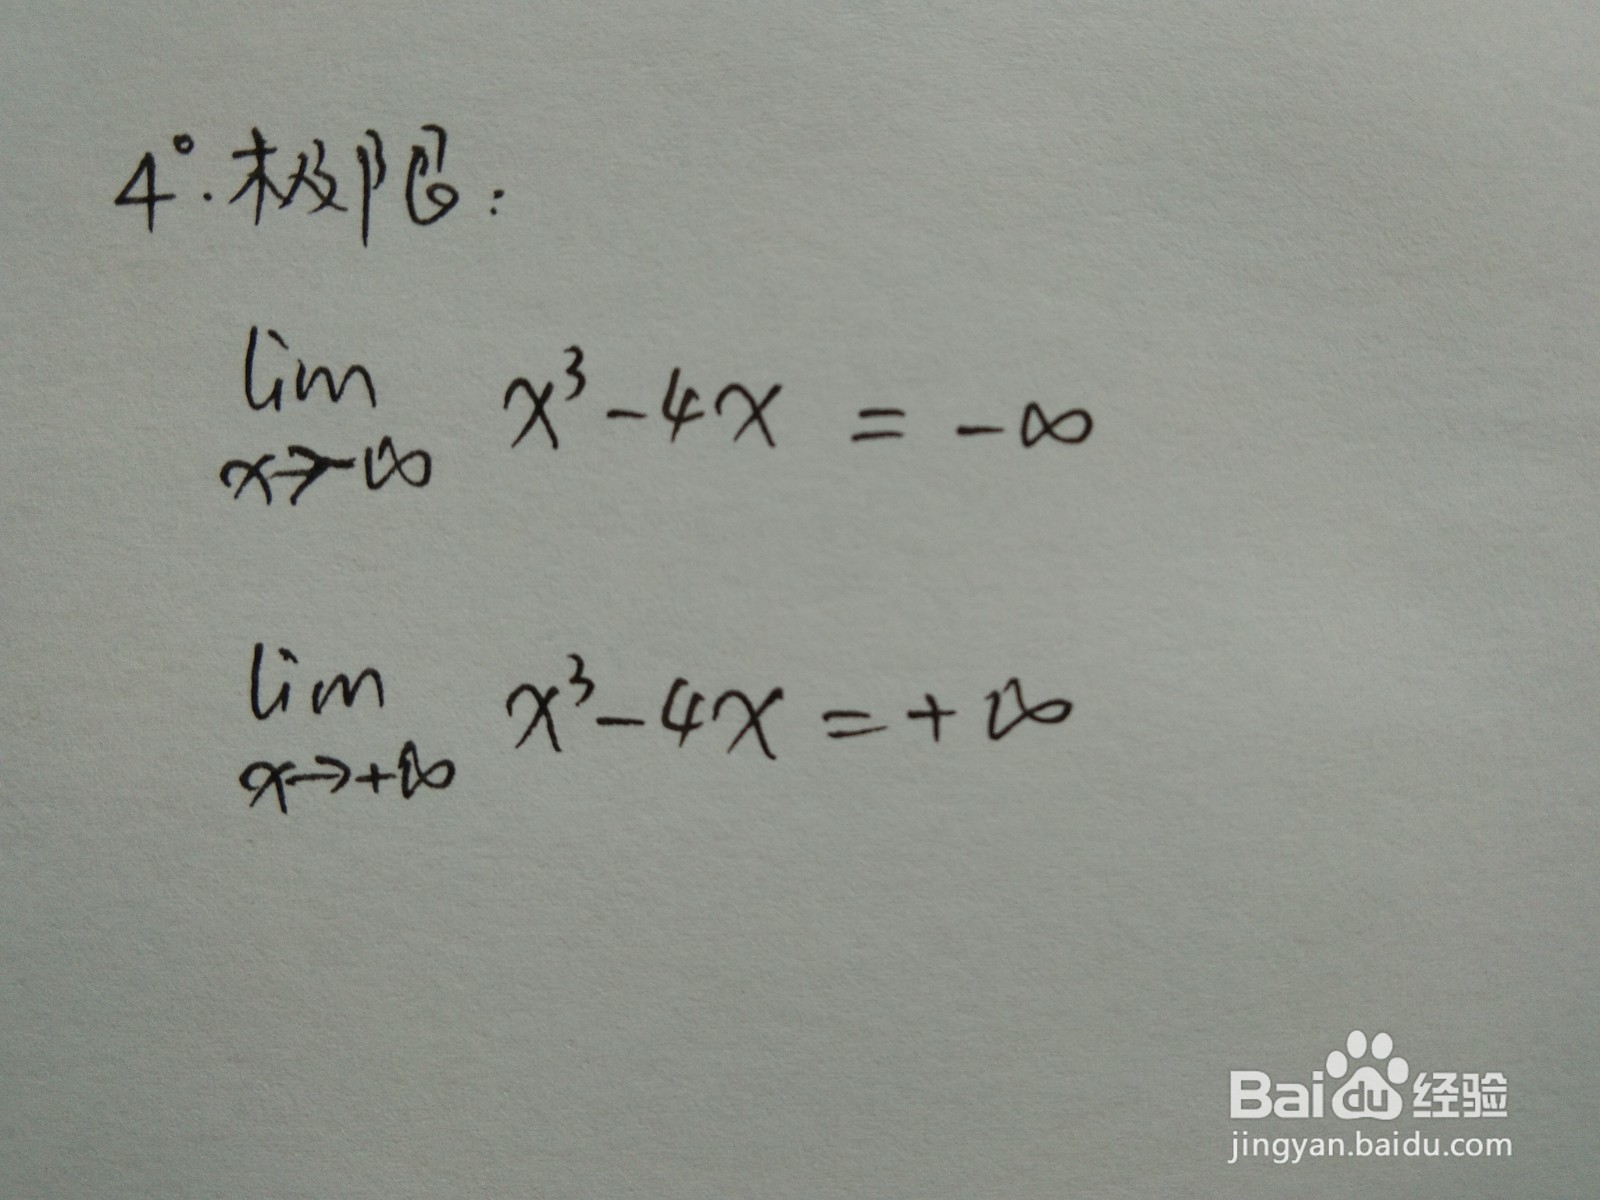 4°.极限:
lim x³-4x = -∞
x→-∞
lim x³-4x = +∞
x→+∞
Baidu经验
jingyan.baidu.com